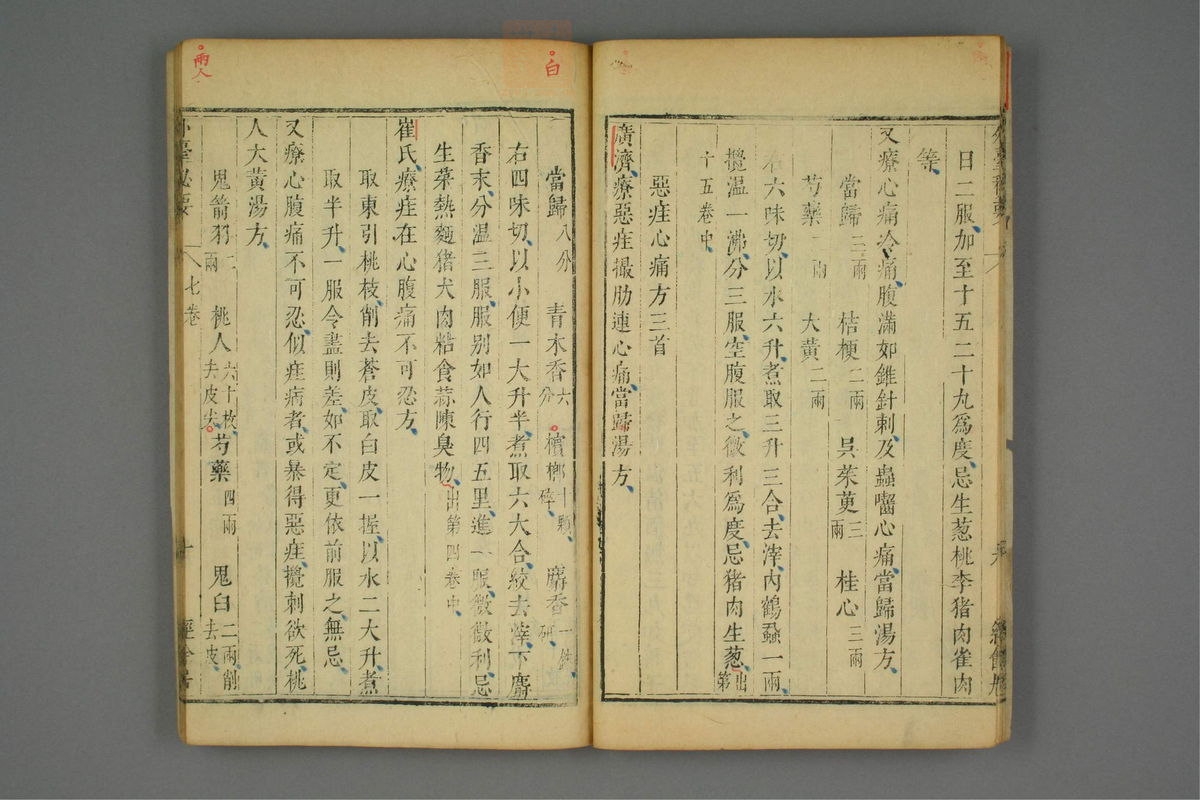 日二服加至十五二十丸爲度忌生葱桃李猪肉雀肉
等
又療心痛冷痛腹滿如錐針刺及蟲嚙心痛當歸湯方
當歸二兩 桔梗二兩 吳茱萸三兩 桂心三兩
芍藥一兩 大黄二兩
右六味切以水六升煮取三升三合去滓内鶴蝨一兩
攪温一沸分三服空腹服之微利爲度忌猪肉生葱出第
十五卷中
惡疰心痛方三首
廣濟療惡疰撮肋連心痛當歸湯方
白
當歸八分 青木香六分 檳榔十顆碎 麝香一銖研
右四味切以小便一大升半煮取六大合絞去滓下麝
香末分温三服服别如人行四五里進一服微微利忌
生菜熱麵猪犬肉粘食蒜陳臭物出第四卷中
崔氏療疰在心腹痛不可忍方
取東引桃枝削去蒼皮取白皮一握以水二大升煮
取半升一服令盡則差如不定更依前服之無忌
又療心腹痛不可忍似疰病者或暴得惡疰攪刺欲死桃
人大黄湯方
鬼箭羽二兩 桃人六十枚去皮尖 芍藥四兩 鬼臼二兩削去皮
兩人
外臺祕要 七卷 十 經餘居